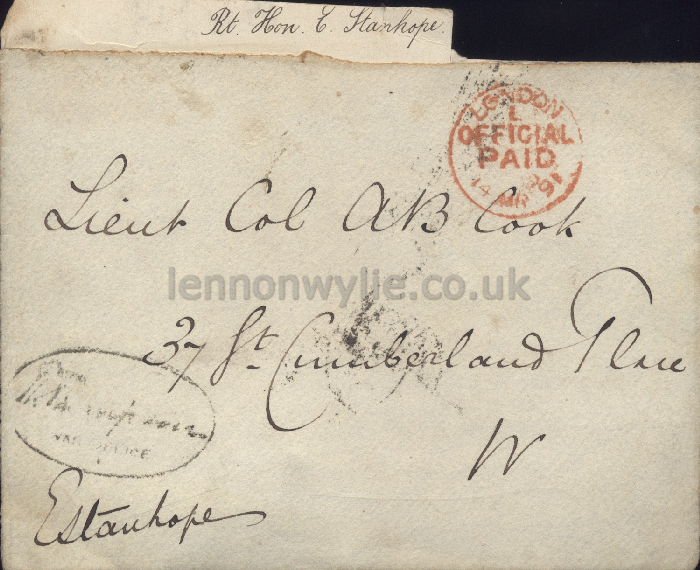 Rt. Hon. E. Stanhope.
LONDON
L
OFFICIAL
PAID
14 MR 91
Lieut Col AB Cook
lennonwylie.co.uk
37 Gt. Cumberland Place
W
WAR OFFICE
EStanhope